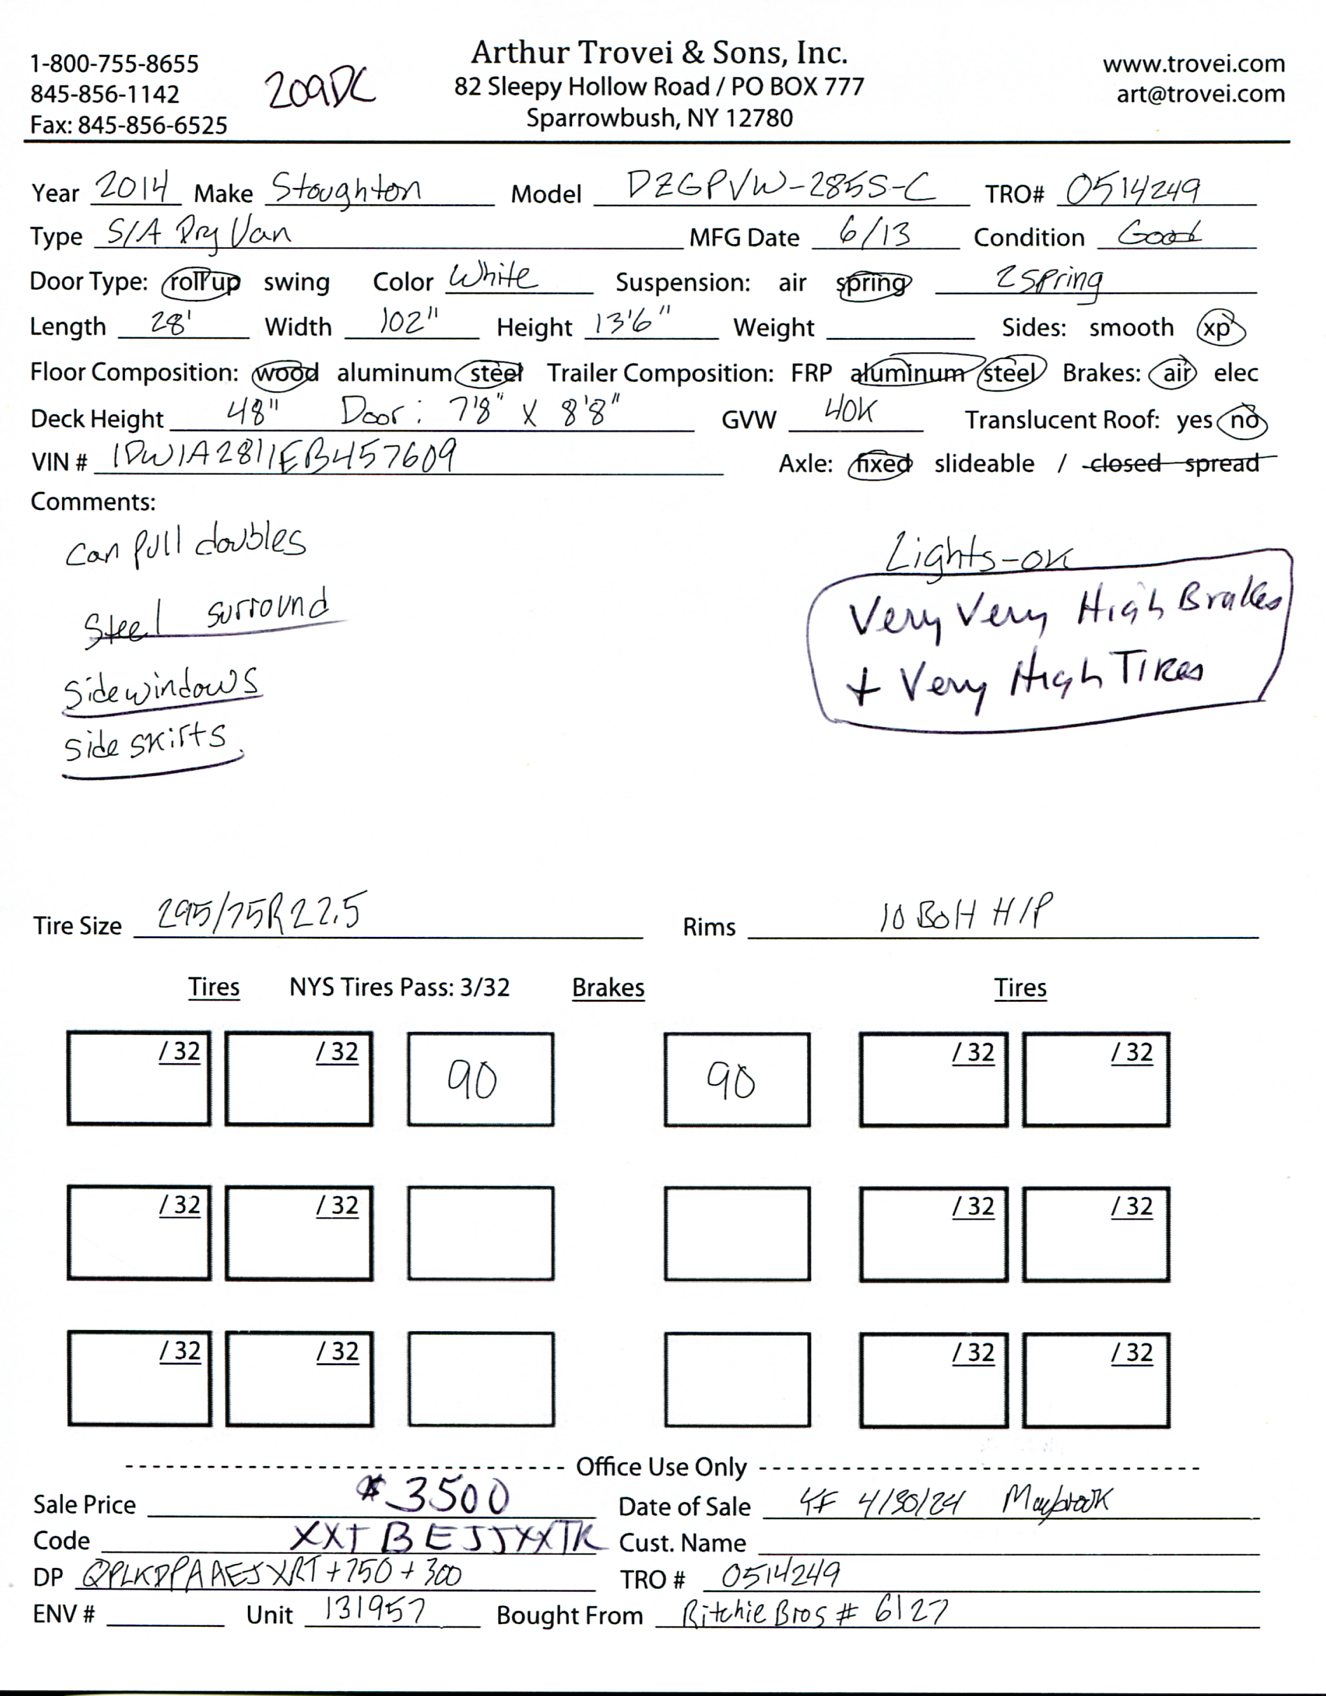 1-800-755-8655
845-856-1142
Fax: 845-856-6525
209DC
Arthur Trovei & Sons, Inc.
82 Sleepy Hollow Road / PO BOX 777
Sparrowbush, NY 12780
www.trovei.com
art@trovei.com
Year 2014 Make Stoughton Model DZGPVW-285S-C TRO# 0514249
Type S/A Dry Van MFG Date 6/13 Condition Good
Door Type: roll up swing Color White Suspension: air spring 2 spring
Length 28' Width 102" Height 13'6" Weight Sides: smooth xp
Floor Composition: wood aluminum steel Trailer Composition: FRP aluminum steel Brakes: air elec
Deck Height 48" Door: 7'8" X 8'8" GVW 40K Translucent Roof: yes no
VIN # 1DW1A2811EB457609 Axle: fixed slideable / closed spread
Comments:
can pull doubles
Steel surround
side windows
side skirts
Lights-ok
Very Very High Brakes
+ Very High Tires
Tire Size 295/75R22.5 Rims 10 Bolt H/P
Tires NYS Tires Pass: 3/32 Brakes Tires
/32 /32 90 90 /32 /32
/32 /32 /32 /32
/32 /32 /32 /32
Office Use Only
Sale Price $3500 Date of Sale 4/30/24 Maybrook
Code Cust. Name
DP +750+300 TRO # 0514249
ENV # Unit 131957 Bought From Ritchie Bros # 6127